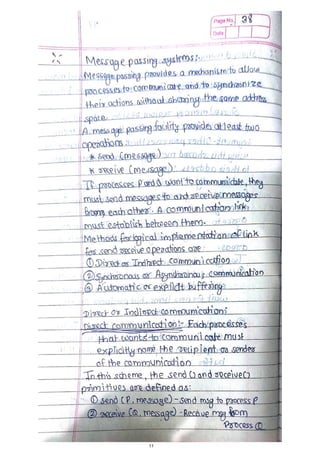 Page No. 38
Date
Message passing systems:-
Message passing provides a mechanism to allow
processes to communicate and to synchronize
their actions without sharing the same address
space.
A message passing facility provides at least two
operations
* send (message)
* receive (message)
If processes P and Q want to communicate, they
must send messages to and receive messages
from each other. A communication link
must establish between them.
Methods for logical implementation of link
for send receive operations are
① Direct or Indirect communication
② Synchronous or Asynchronous communication
③ Automatic or explicit buffering
Direct or Indirect communication:
Direct communication:- Each processes
that wants to communicate must
explicitly name the recipient or sender
of the communication
In this scheme, the send() and receive()
primitives are defined as:
① send (P, message) - send msg to process P
② receive (Q, message) - Receive msg from
Process Q